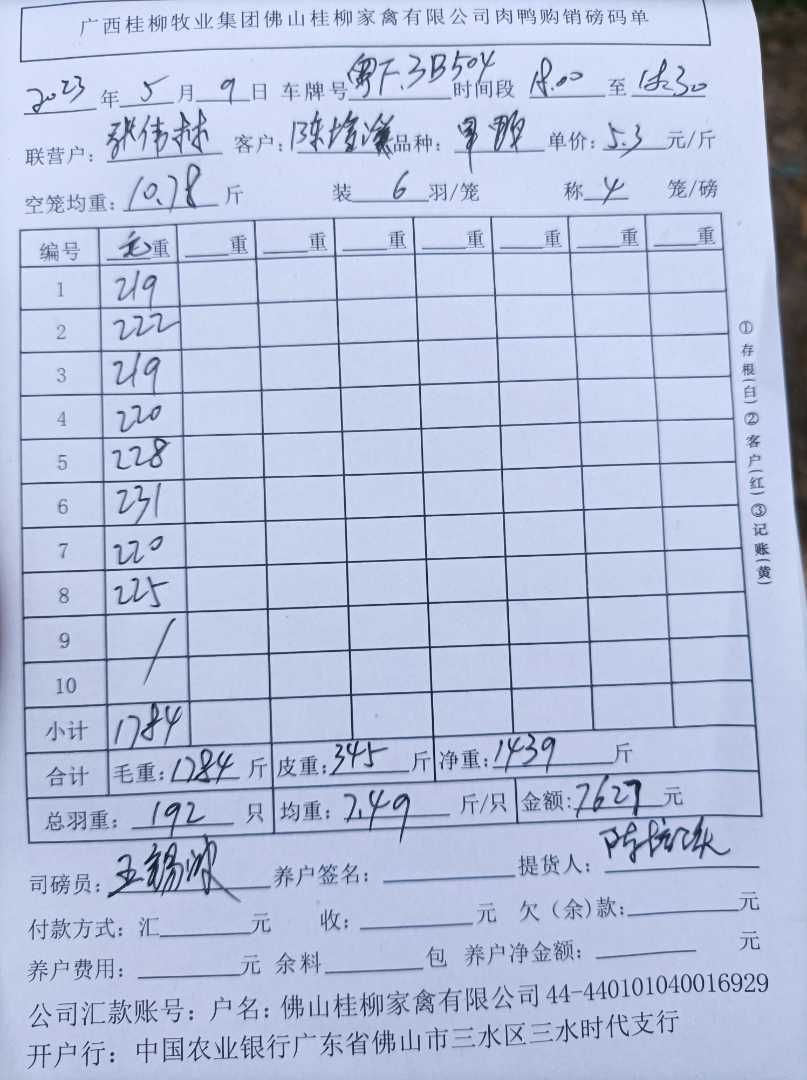 广西桂柳牧业集团佛山桂柳家禽有限公司肉鸭购销磅码单
2023年5月9日 车牌号粤F.3B504时间段18.00至18:30
联营户:张伟林 客户:陈 品种: 单价:5.3元/斤
空笼均重:10.78斤 装6羽/笼 称4笼/磅
编号 毛重 重 重 重 重 重 重 重
1 219
2 222
3 219
4 220
5 228
6 231
7 220
8 225
9 /
10
小计 1784
合计 毛重:1784斤 皮重:345斤 净重:1439斤
总羽重:192只 均重:7.49斤/只 金额:7627元
司磅员:王锡 养户签名: 提货人:陈
付款方式:汇 元 收: 元 欠(余)款: 元
养户费用: 元 余料 包 养户净金额: 元
公司汇款账号:户名:佛山桂柳家禽有限公司44-440101040016929
开户行:中国农业银行广东省佛山市三水区三水时代支行
①存根(白)②客户(红)③记账(黄)